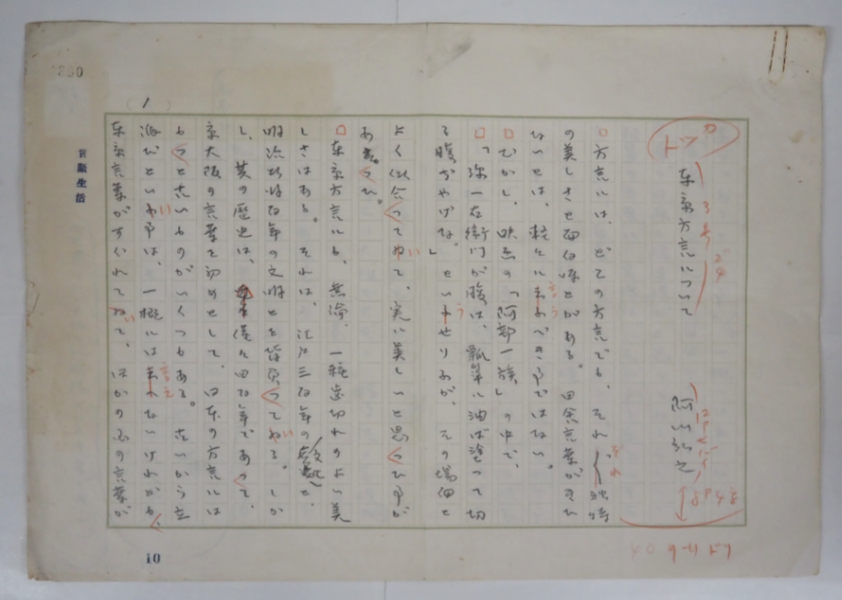 東京方言について
方言には、どこの方言でも、それ〱独特
の美しさと面白味とがある。田舎言葉がきた
ないとは、軽々に云ふべき事ではない。
むかし、映画の「阿部一族」の中で、
「弥一右衛門が腹は、瓢箪に油ば塗つて切
る腹がやげな。」といふせりふが、その場面と
よく似合つてゐて、実に美しいと思つた事が
ある。
東京方言にも、無論、一種歯切れのよい美
しさはある。それは、江戸三百年の文化と、
明治以後百年の文明とを背負つてゐる。しか
し、其の歴史は、僅々四百年であつて、
京大阪の言葉を初めとして、日本の方言には
もつと古いものがいくつもある。古いから立
派だといふ事は、一概には云へないけれども、
東京言葉がすぐれてゐて、ほかの国の言葉が
新製生活
10